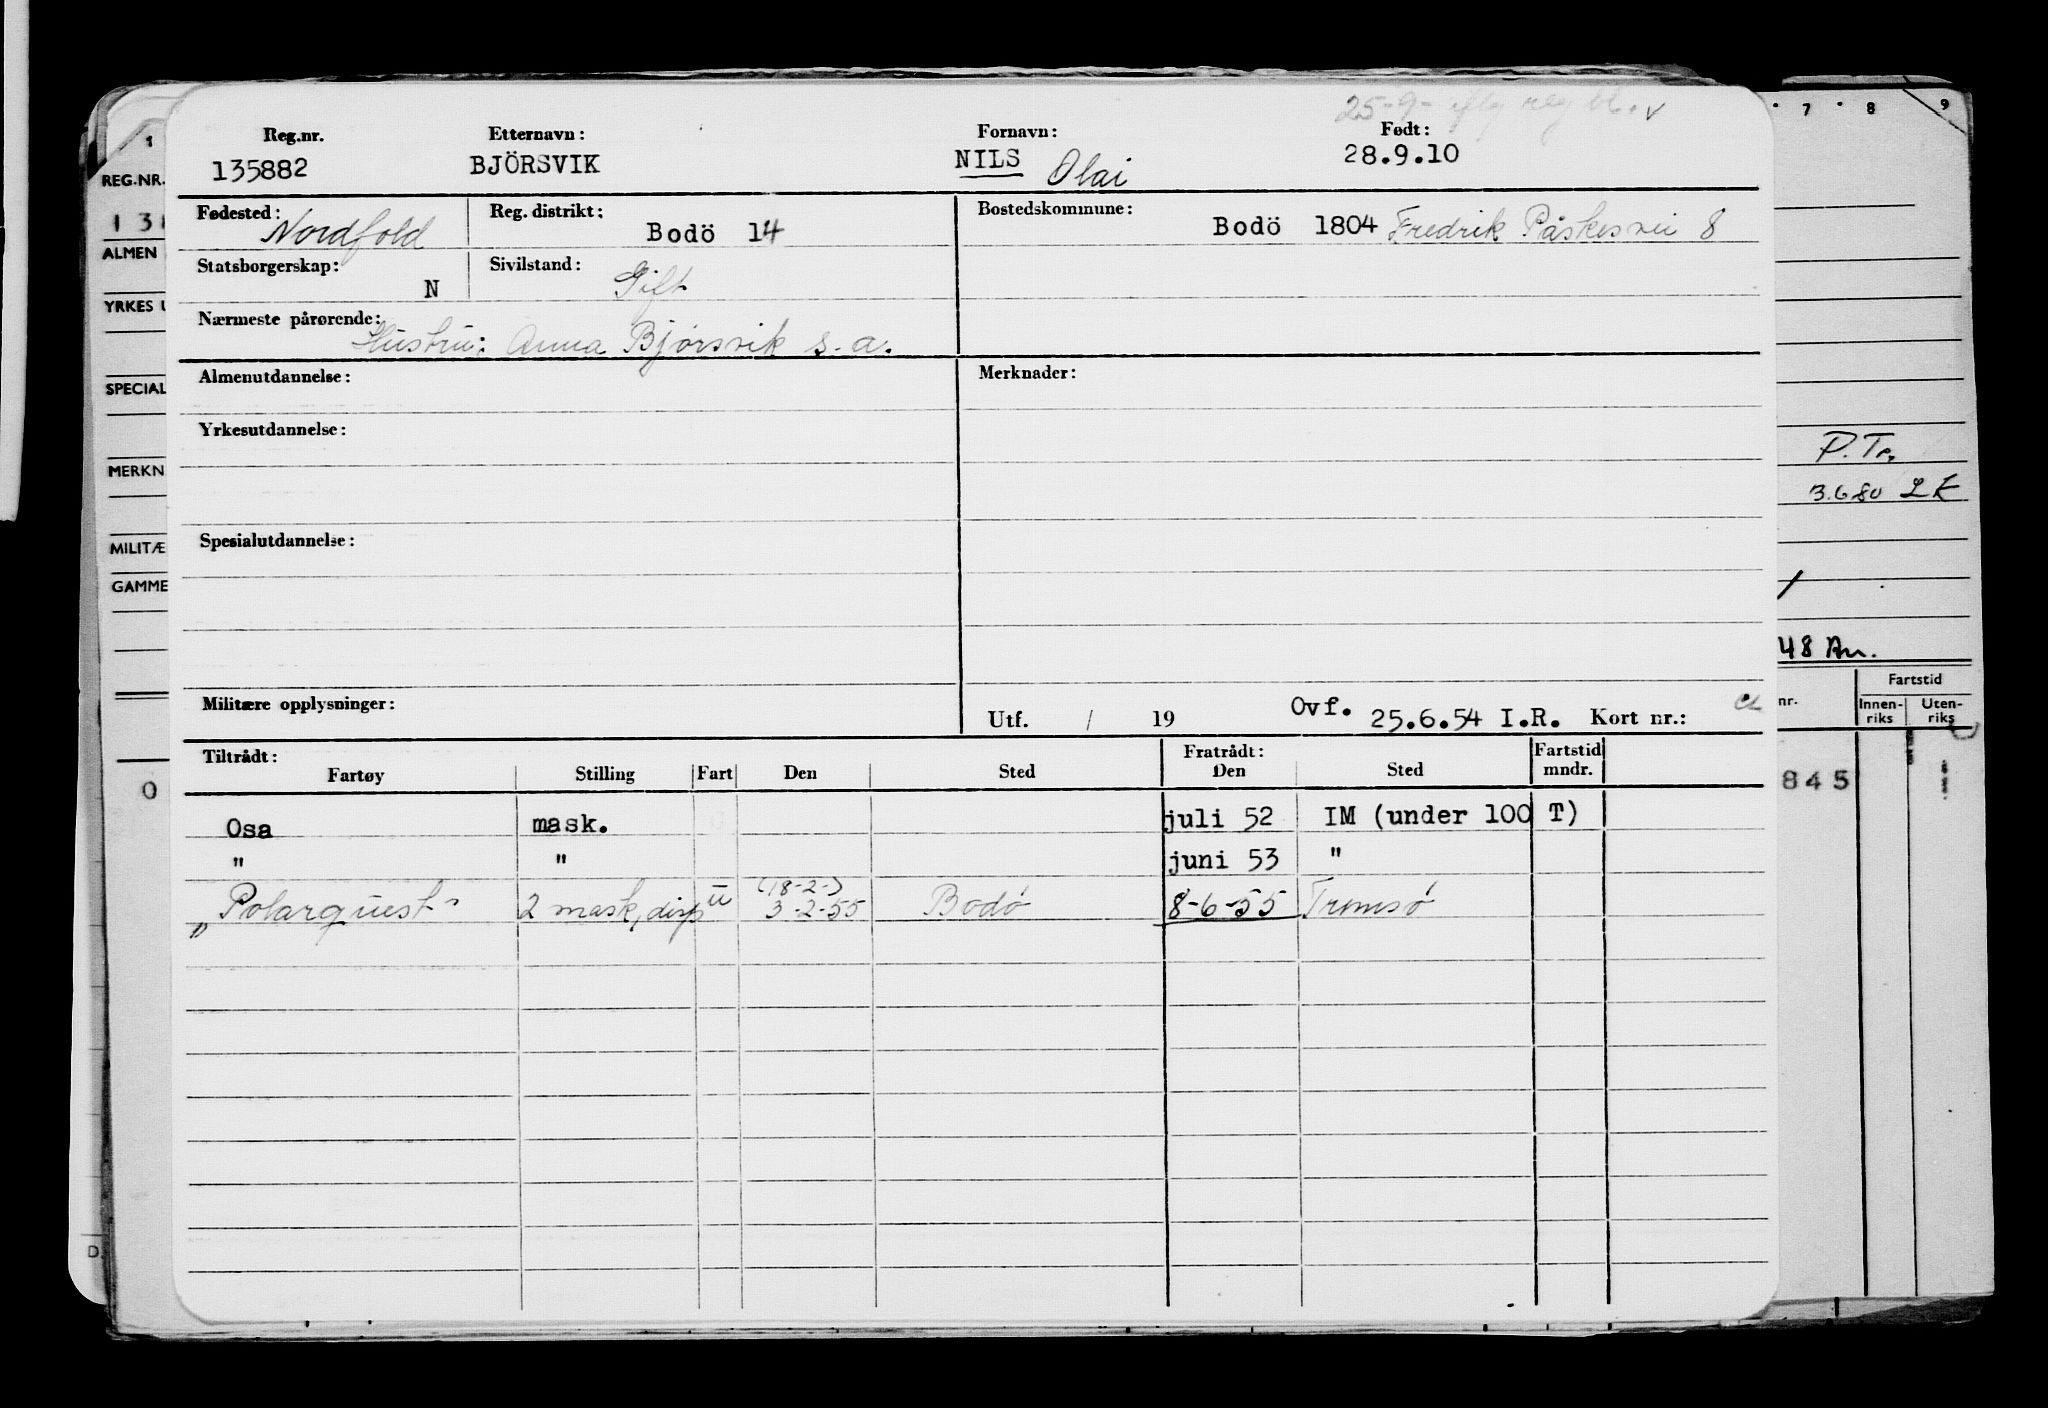 25-9- iflg reg bl. v
Reg.nr. Etternavn: Fornavn: Født:
135882 BJÖRSVIK NILS Olai 28.9.10
Fødested: Nordfold Reg. distrikt: Bodö 14 Bostedskommune: Bodö 1804 Fredrik Påskesvei 8
Statsborgerskap: N Sivilstand: Gift
Nærmeste pårørende: Hustru: Anna Bjørsvik s.a.
Almenutdannelse: Merknader:
Yrkesutdannelse:
Spesialutdannelse:
Militære opplysninger: Utf. / 19 Ovf. 25.6.54 I.R. Kort nr.:
Tiltrådt: Fratrådt: Fartstid
Fartøy Stilling Fart Den Sted Den Sted mndr.
Osa mask. juli 52 IM (under 100 T)
" " juni 53 "
(18-2-)
"Polarquest" 2 mask, disp U 3-2-55 Bodø 8-6-55 Tromsø
1
REG.NR.
13
ALMEN
YRKES U
SPECIAL
MERKN
MILITÆ
GAMME
0
D.
7 8 9
P. Tr.
3.6.80 LK
48 An.
Fartstid
nr. Innen-riks Uten-riks
845